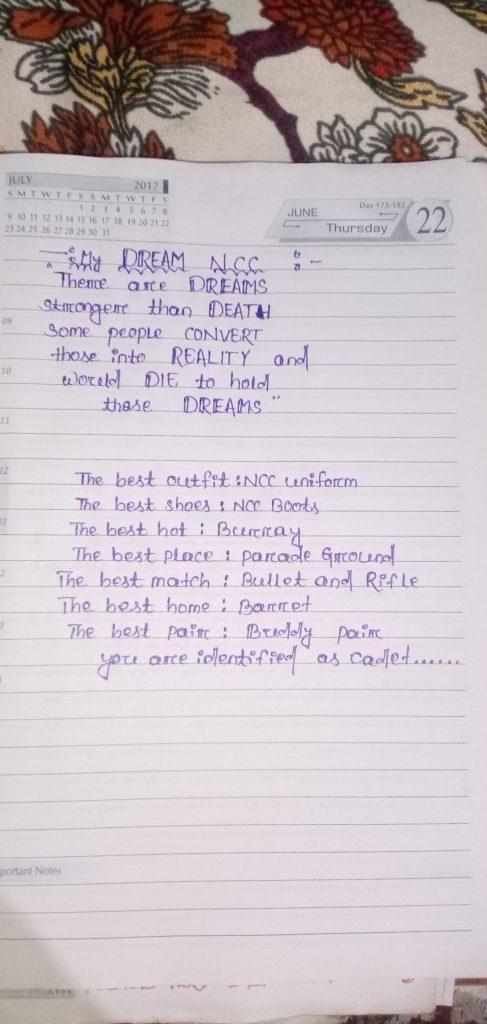 JULY 2017
S M T W T F S S M T W T F S
1 2 3 4 5 6 7 8
9 10 11 12 13 14 15 16 17 18 19 20 21 22
23 24 25 26 27 28 29 30 31
JUNE
Day 173-192
Thursday
22
My DREAM NCC :-
There are DREAMS
strongerr than DEATH
09
Some people CONVERT
those into REALITY and
10
would DIE to hold
those DREAMS "
11
12
The best outfit : NCC uniform
The best shoes : NCC Boots
01
The best hot : Burray
The best place : parade Ground
2
The best match : Bullet and Rifle
The best home : Barret
3
The best pair : Buddy pair
you are identified as cadet......
portant Notes